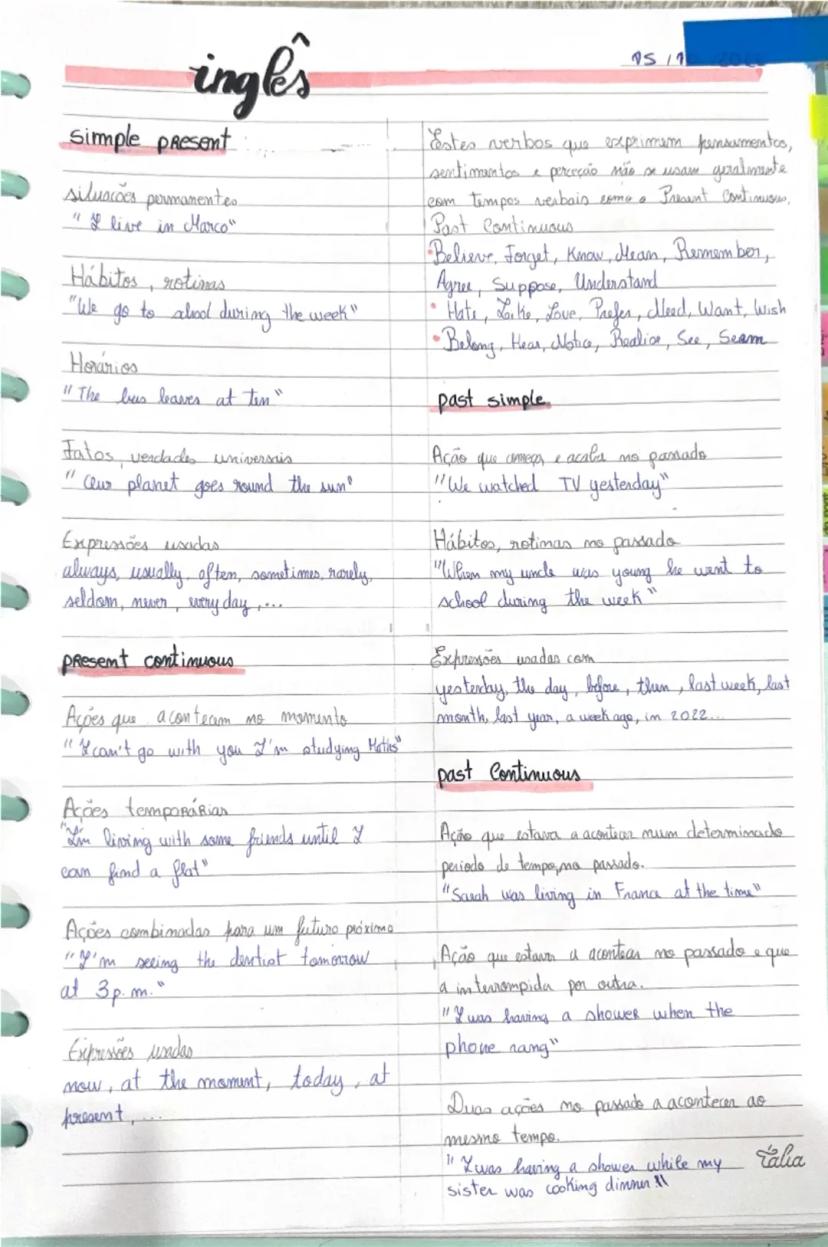 inglês
15/1
simple present
situações permanentes
"I live in Marco"
Hábitos, rotinas
"We go to shool during the week"
Horários
"The bus leaves at ten"
Fatos, verdades universais
"Our planet goes round the sun"
Expressões usadas
always, usually, often, sometimes, rarely,
seldom, never, every day,...
present continuous
Ações que acontecem no momento
"I can't go with you I'm studying Maths"
Ações temporárias
"I'm living with some friends until I
can find a flat"
Ações combinadas para um futuro próximo
"I'm seeing the dentist tomorrow
at 3 p.m."
Expressões usadas
now, at the moment, today, at
present,...
Estes verbos que exprimem pensamentos,
sentimentos e perceção não se usam geralmente
com tempos verbais como o Present Continuous,
Past Continuous
• Believe, Forget, Know, Mean, Remember,
Agree, Suppose, Understand
• Hate, Like, Love, Prefer, Need, Want, Wish
• Belong, Hear, Notice, Realise, See, Seam
past simple
Ação que começa e acaba no passado
"We watched TV yesterday"
Hábitos, rotinas no passado
"When my uncle was young he went to
school during the week"
Expressões usadas com
yesterday, the day, before, then, last week, last
month, last year, a week ago, in 2022...
past continuous
Ação que estava a acontecer num determinado
periodo de tempo, no passado.
"Sarah was living in France at the time"
Ação que estava a acontecer no passado e que
a interrompida por outra.
"I was having a shower when the
phone rang"
Duas ações no passado a acontecer ao
mesmo tempo.
"I was having a shower while my
sister was cooking dinner"
Tália